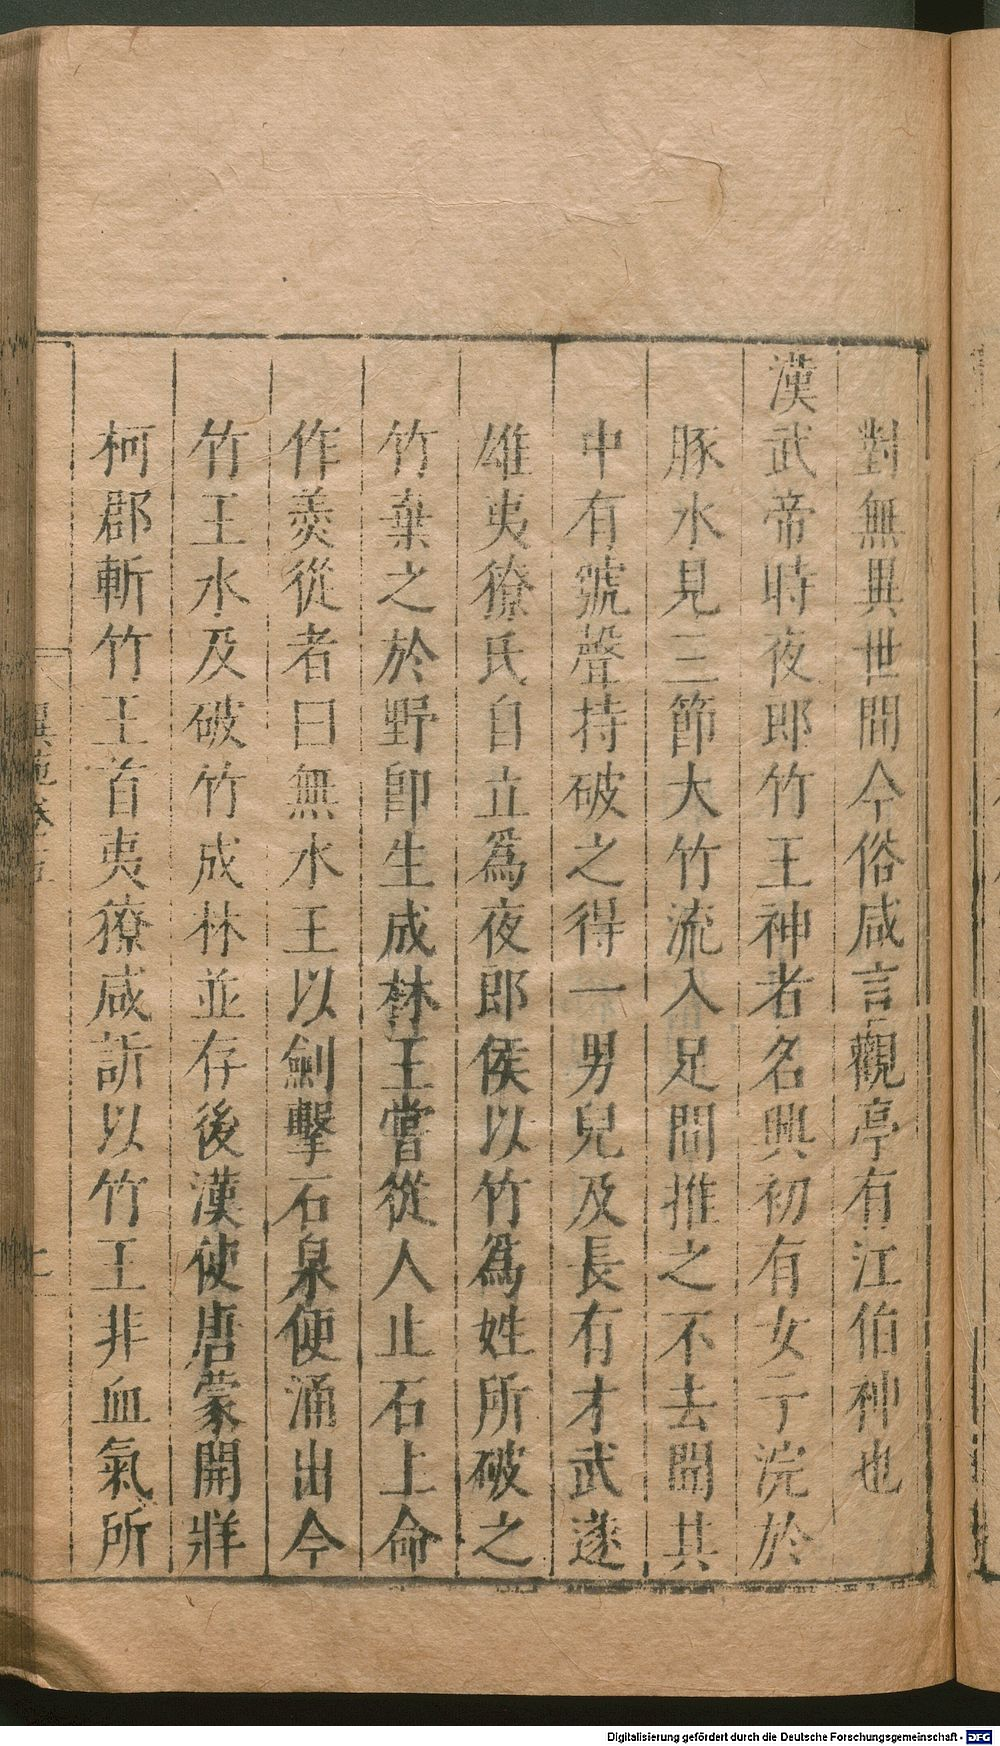 對無異世間今俗咸言觀亭有江伯神也
漢武帝時夜郎竹王神者名興初有女子浣於
豚水見三節大竹流入足間推之不去聞其
中有號聲持破之得一男兒及長有才武遂
雄夷獠氏自立爲夜郎侯以竹爲姓所破之
竹棄之於野卽生成林王嘗從人止石上命
作羮從者曰無水王以劍擊石泉便涌出今
竹王水及破竹成林並存後漢使唐蒙開牂
柯郡斬竹王首夷獠咸訢以竹王非血氣所
異苑卷之五
七
Digitalisierung gefördert durch die Deutsche Forschungsgemeinschaft - DFG